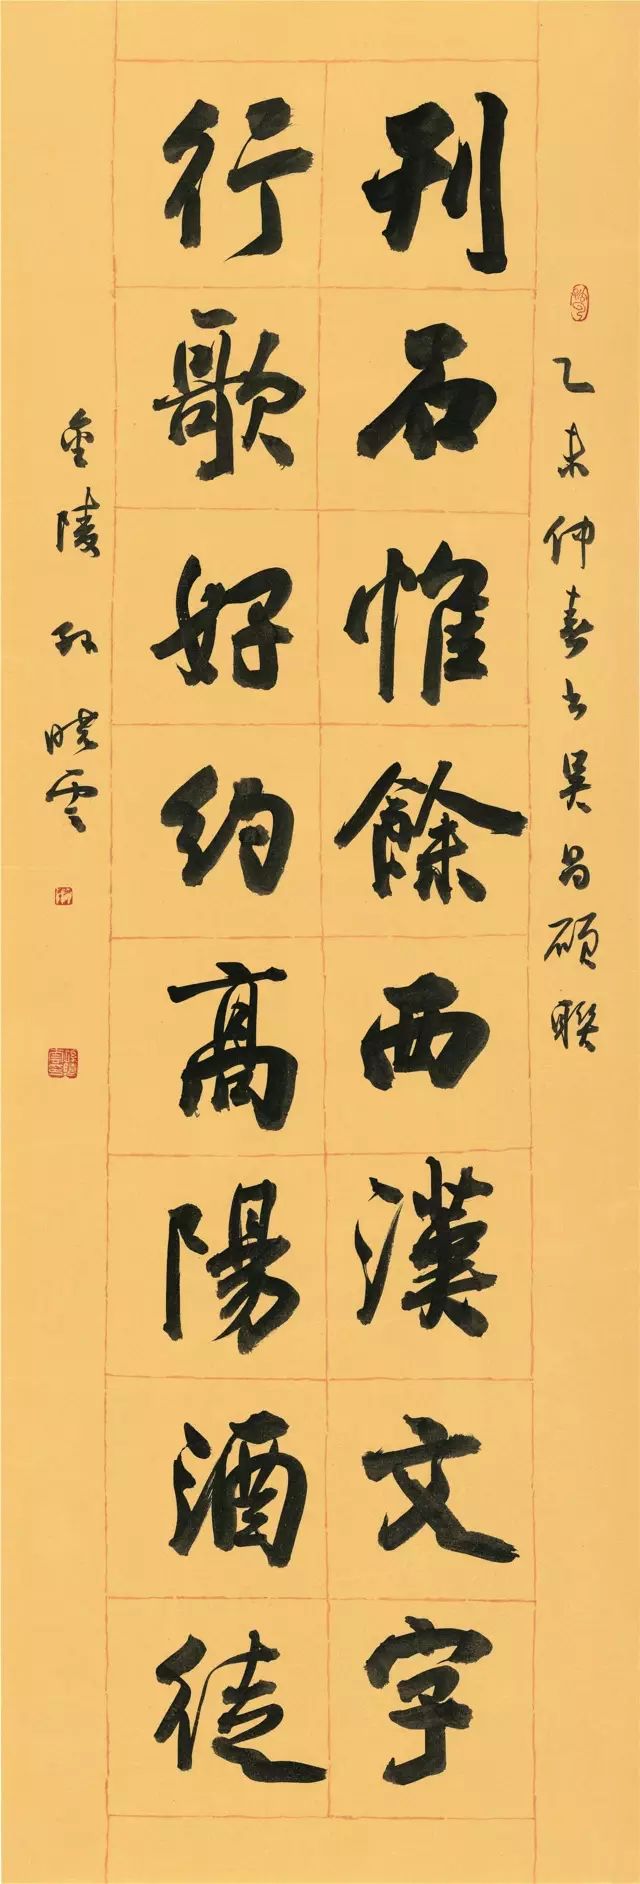 乙未仲春書吴昌碩聯
刊石惟餘西漢文字
行歌好約高陽酒徒
金陵孫曉雲